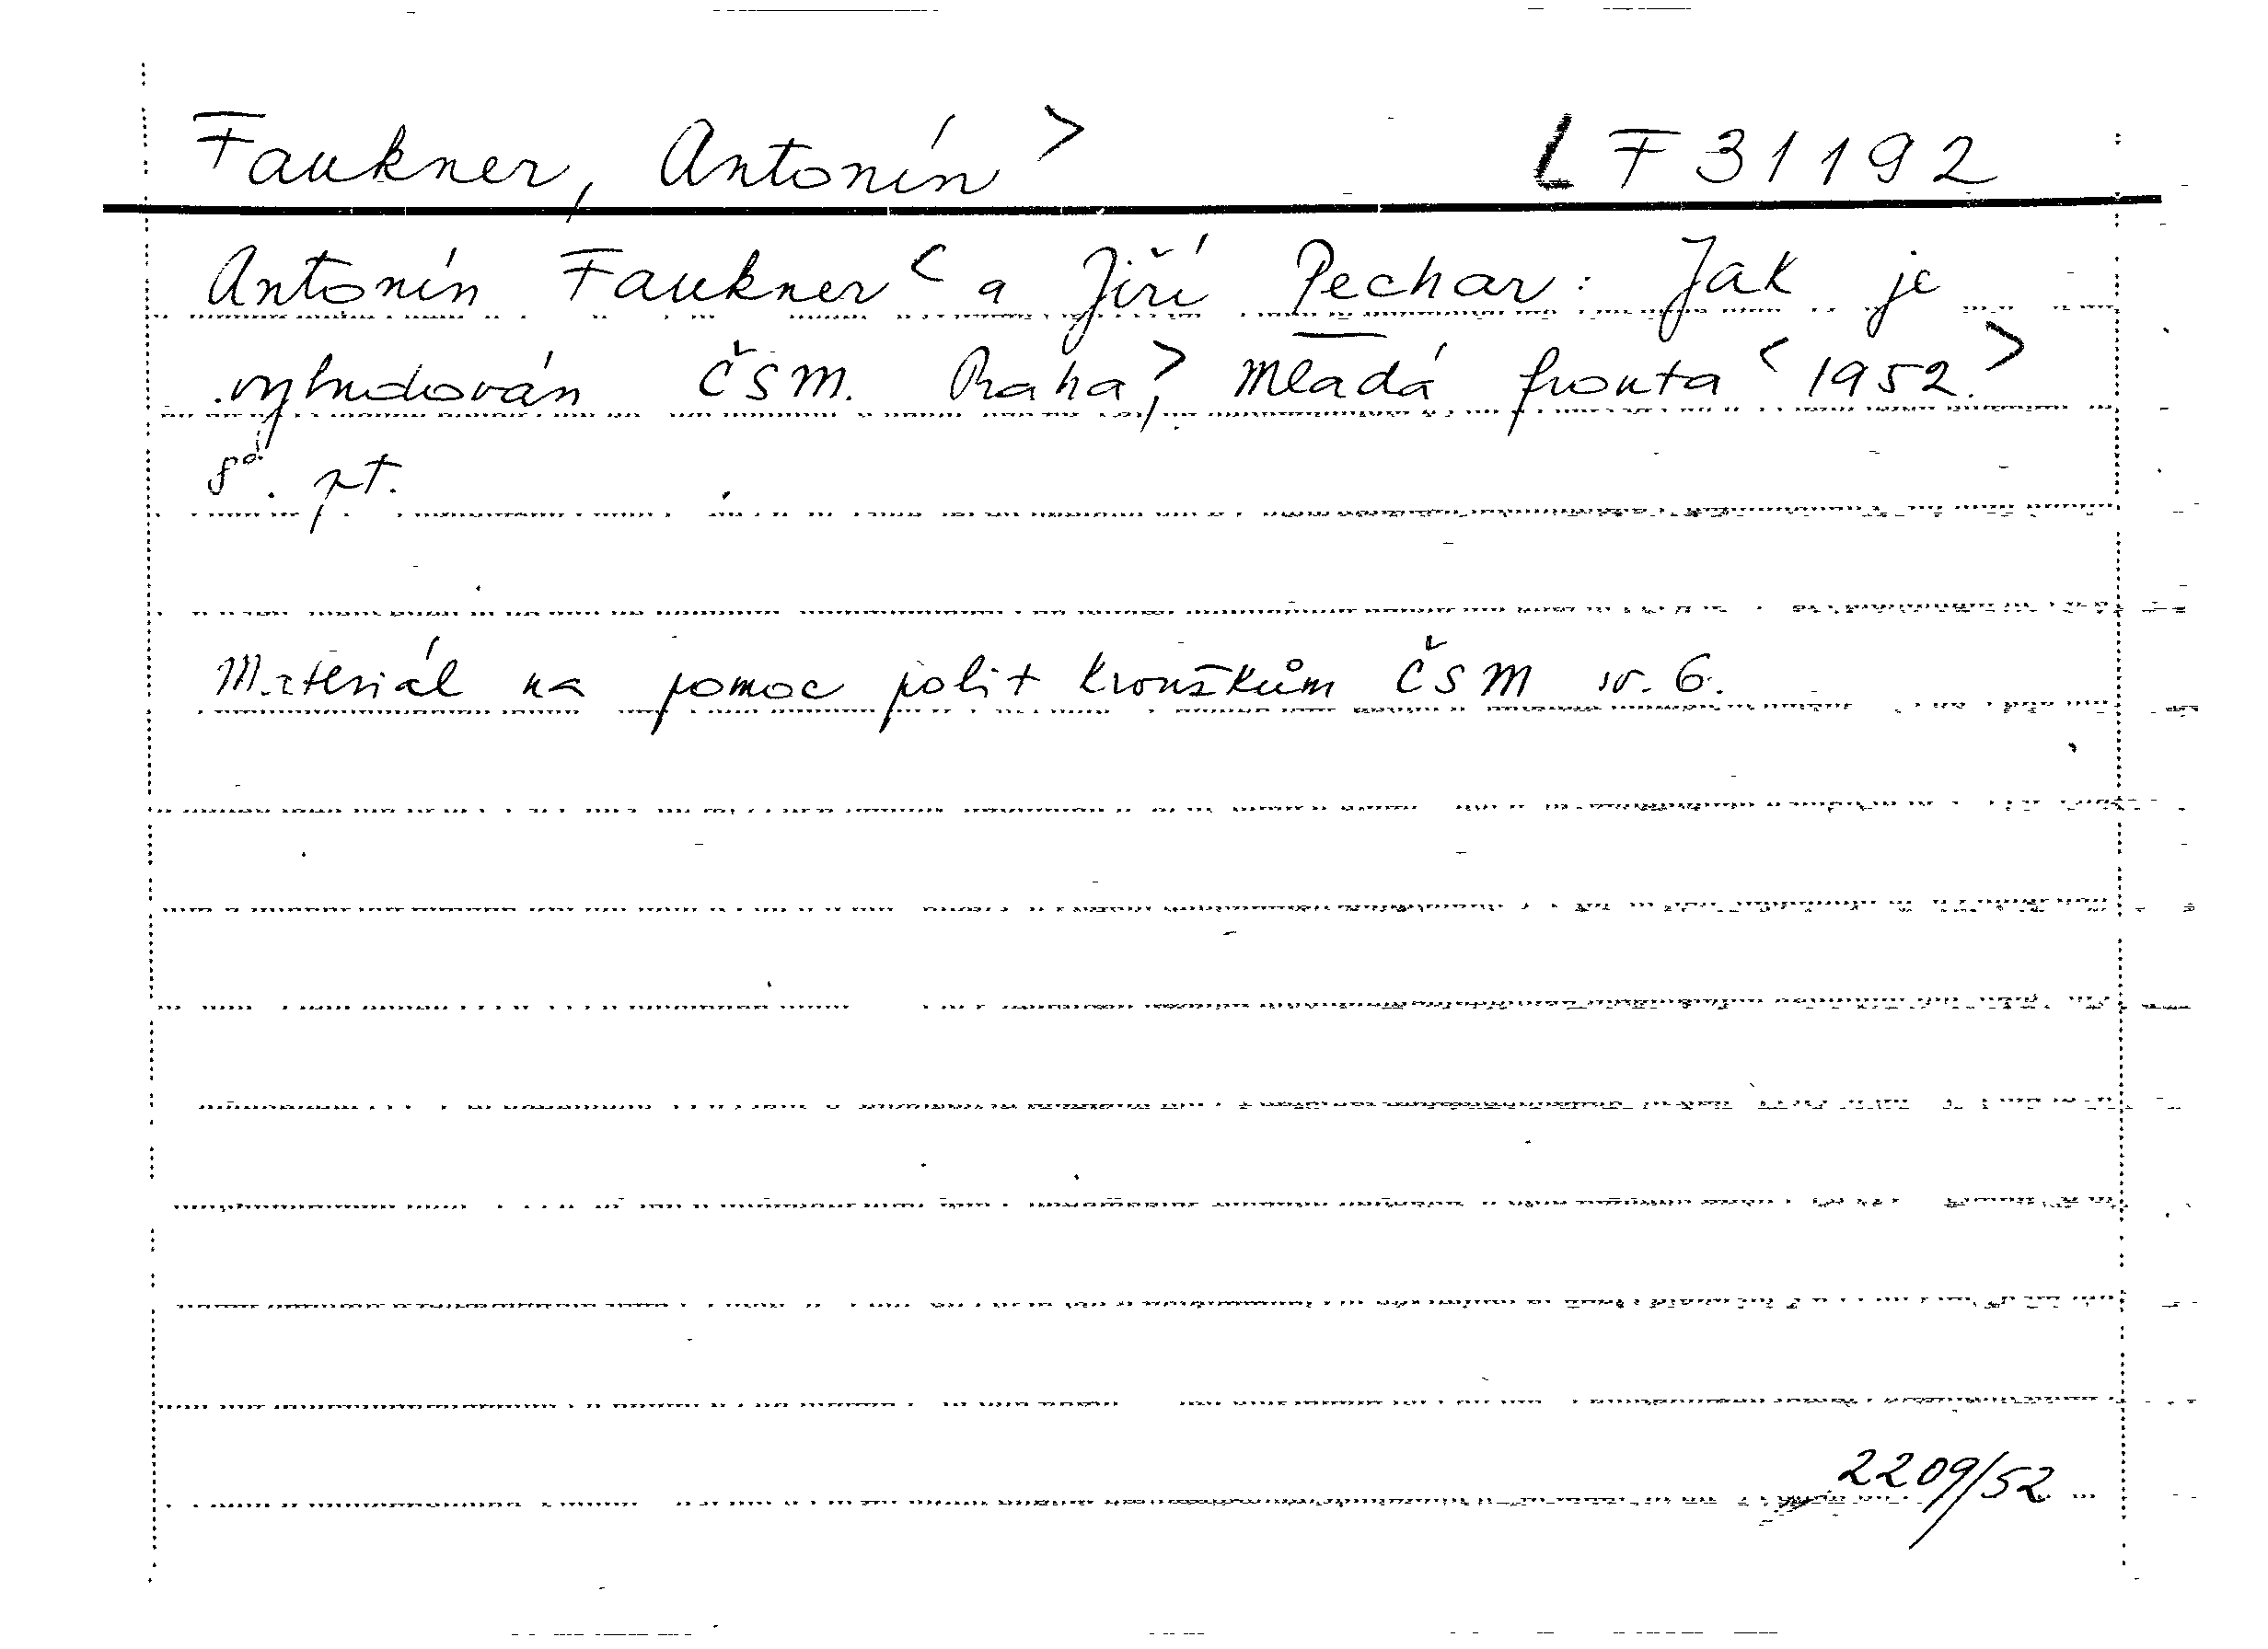 Faukner, Antonín > LF 31192
Antonín Faukner < a Jiří Pechar: Jak je
vybudován ČSM. Praha >, Mladá fronta < 1952. >
8°. pt.
Materiál na pomoc polit kroužkům ČSM sv. 6.
2209/52